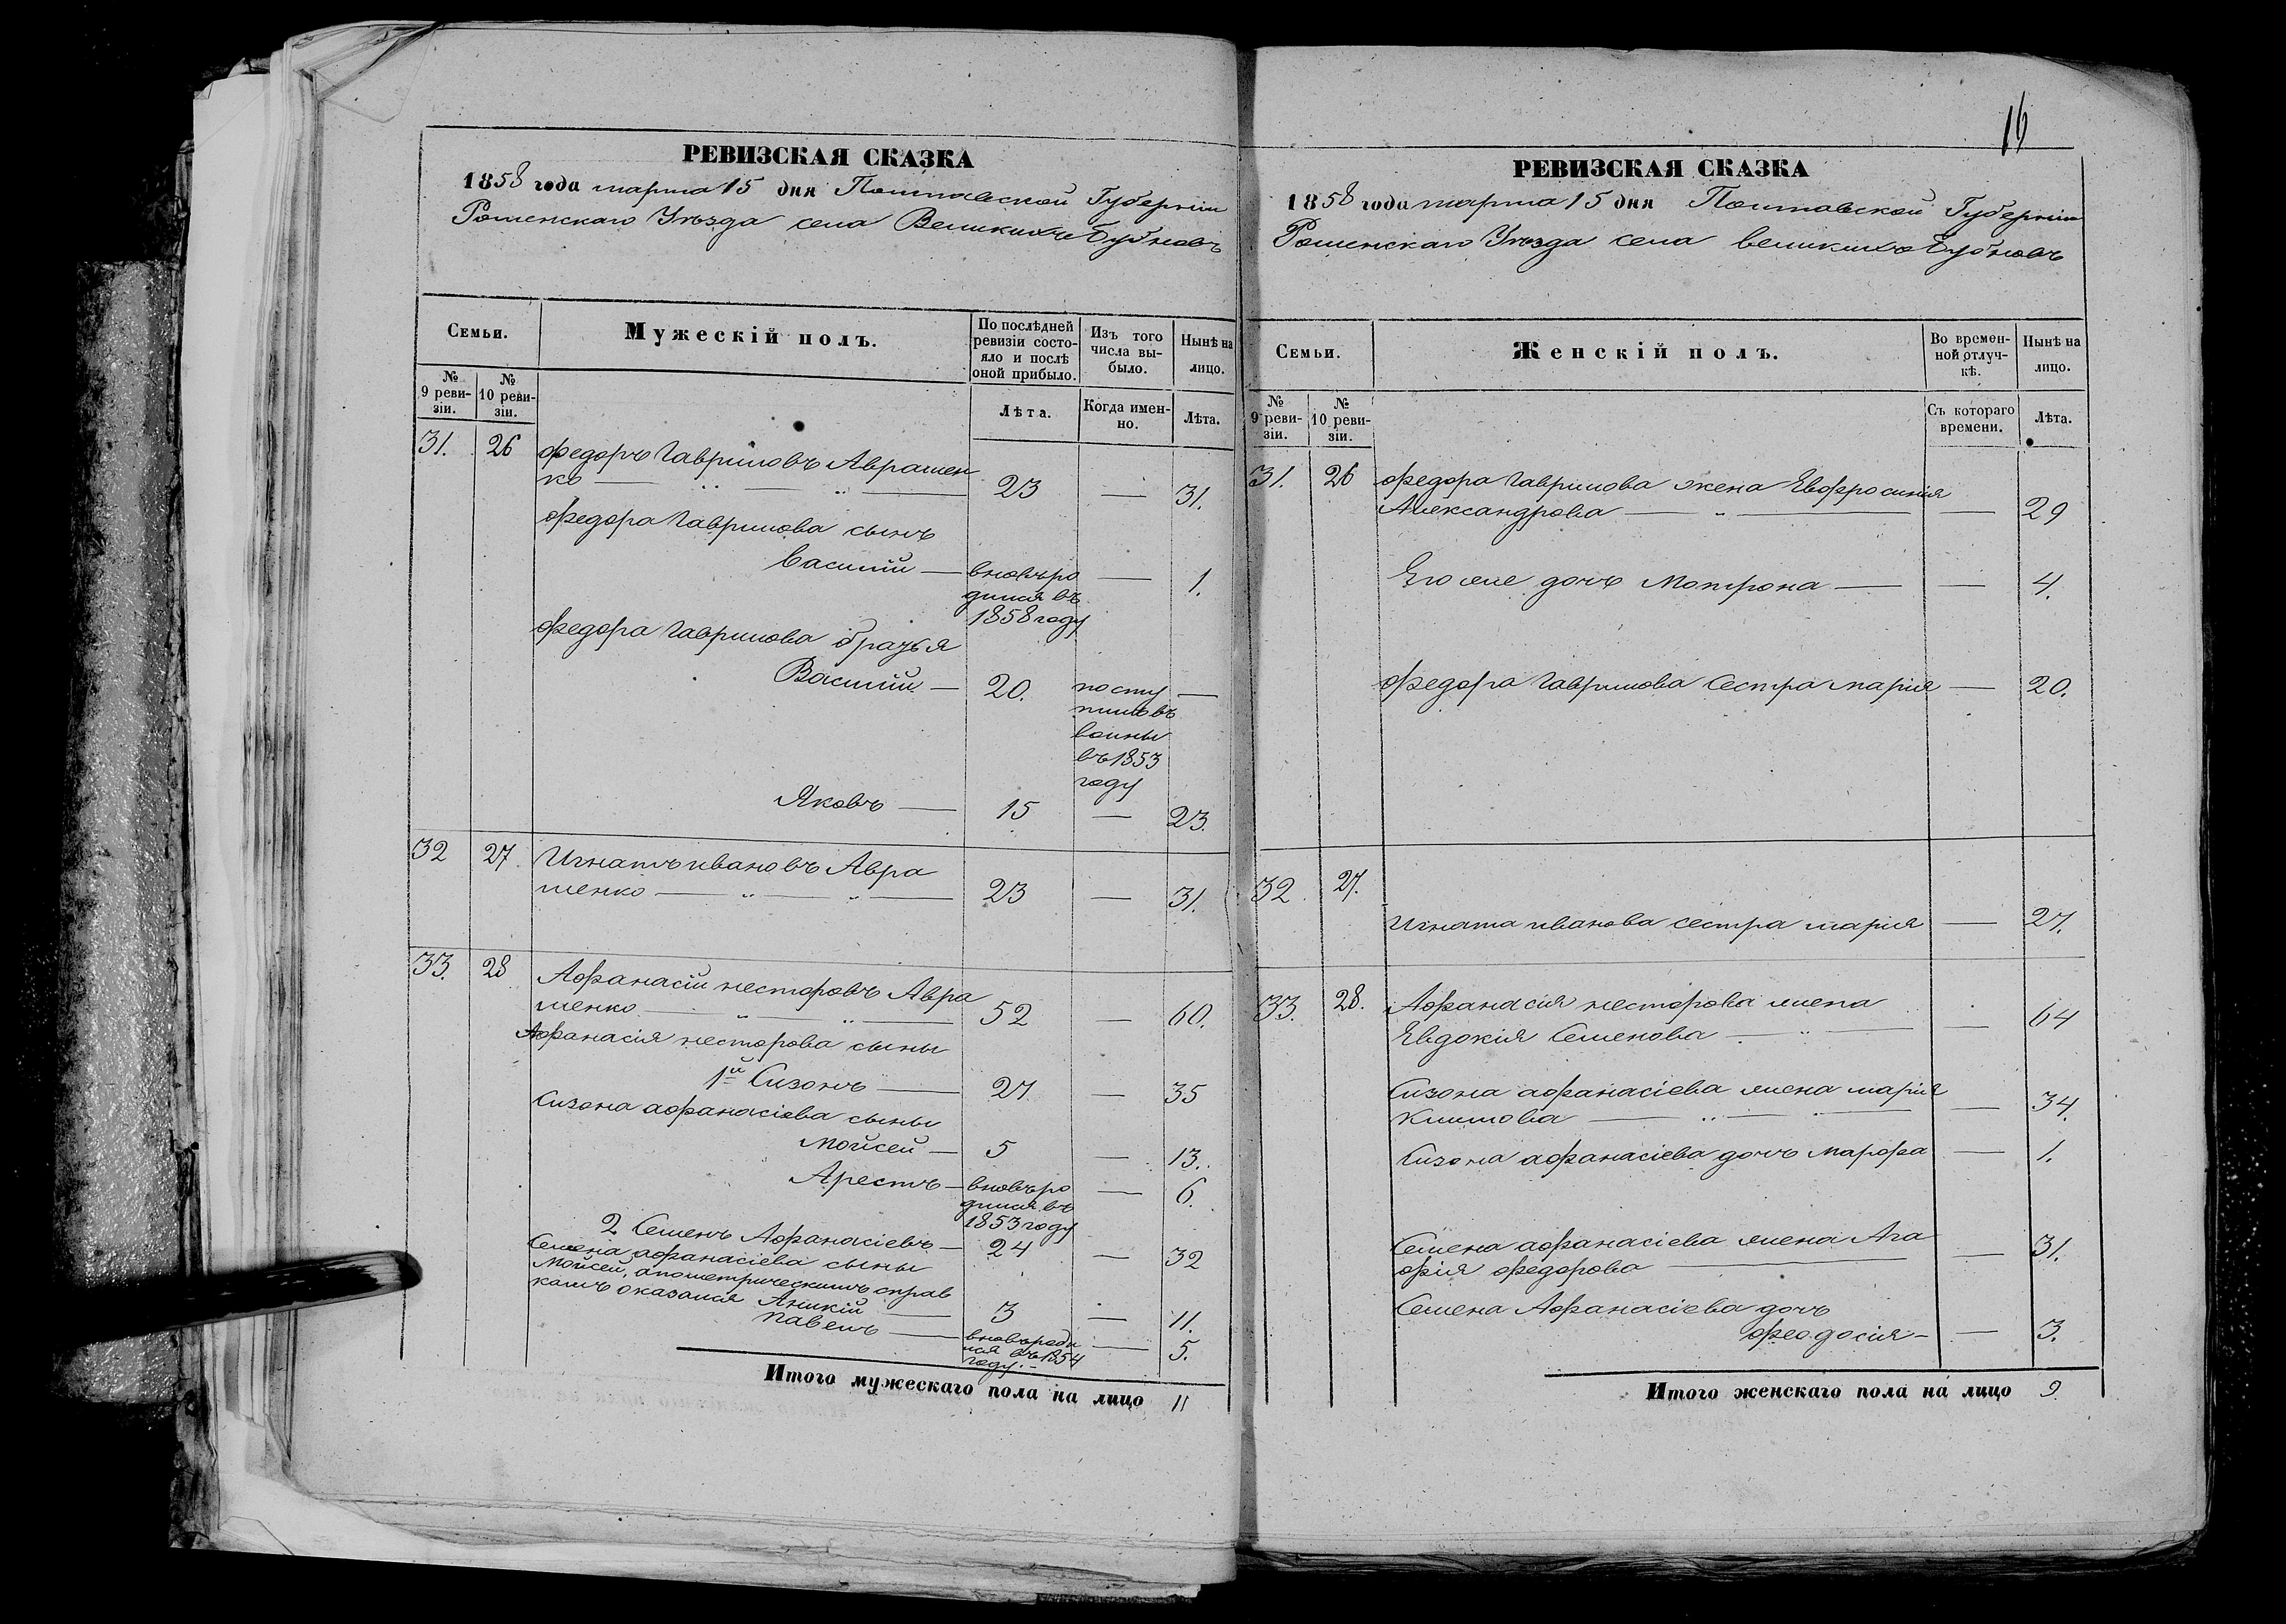 РЕВИЗСКАЯ СКАЗКА
1858 года марта 15 дня Полтавской Губерніи
Роменскаго Уѣзда села Великихъ Бубновъ
Семьи.
Мужескій полъ.
По послѣдней ревизіи состо-
яло и послѣ
оной прибыло.
Изъ того
числа вы-
было.
Нынѣ на
лицо.
№
9 реви-
зіи.
№
10 реви-
зіи.
Лѣта.
Когда имен-
но.
Лѣта.
31. 26 Федоръ Гавриловъ Аврамен
ко — 23 — 31.
Федора Гаврилова сынъ
Василій — вновь ро — 1.
дился въ
1858 году
Федора Гаврилова братья
Василій — 20. посту —
пилъ въ
воины
въ 1853
году
Яковъ — 15 — 23.
32 27. Игнатъ Ивановъ Авра
менко — 23 — 31.
33. 28 Афанасій Несторовъ Авра
менко — 52 — 60.
Афанасія Несторова сыны
1й Сизонъ — 27 — 35
Сизона Афанасіева сыны
Мойсей — 5 — 13.
Арестъ — вновь ро — 6.
дился въ
1853 году
2 Семенъ Афанасіевъ — 24 — 32
Семена Афанасіева сыны
Мойсей, а по метрическимъ справ
камъ оказался Аникій — 3 — 11.
Павелъ — вновь роди — 5.
лся въ 1854
году. —
Итого мужескаго пола на лицо 11
16
РЕВИЗСКАЯ СКАЗКА
1858 года марта 15 дня Полтавской Губерніи
Роменскаго Уѣзда села Великихъ Бубновъ
Семьи.
Женскій полъ.
Во времен-
ной отлуч-
кѣ.
Нынѣ на
лицо.
№
9 реви-
зіи.
№
10 реви-
зіи.
Съ котораго
времени.
Лѣта.
31. 26 Федора Гаврилова жена Евфросинія
Александрова — — 29
Его же дочь Матрона — — 4.
Федора Гаврилова сестра Марія — 20.
32. 27.
Игната Иванова сестра Марія — 27.
33. 28. Афанасія Несторова жена
Евдокія Семенова — — 64
Сизона Афанасіева жена Марія
Климова — — 34.
Сизона Афанасіева дочь Марфа — 1.
Семена Афанасіева жена Ага
фія Федорова — — 31.
Семена Афанасіева дочь
Феодосія — — 3.
Итого женскаго пола на лицо 9.